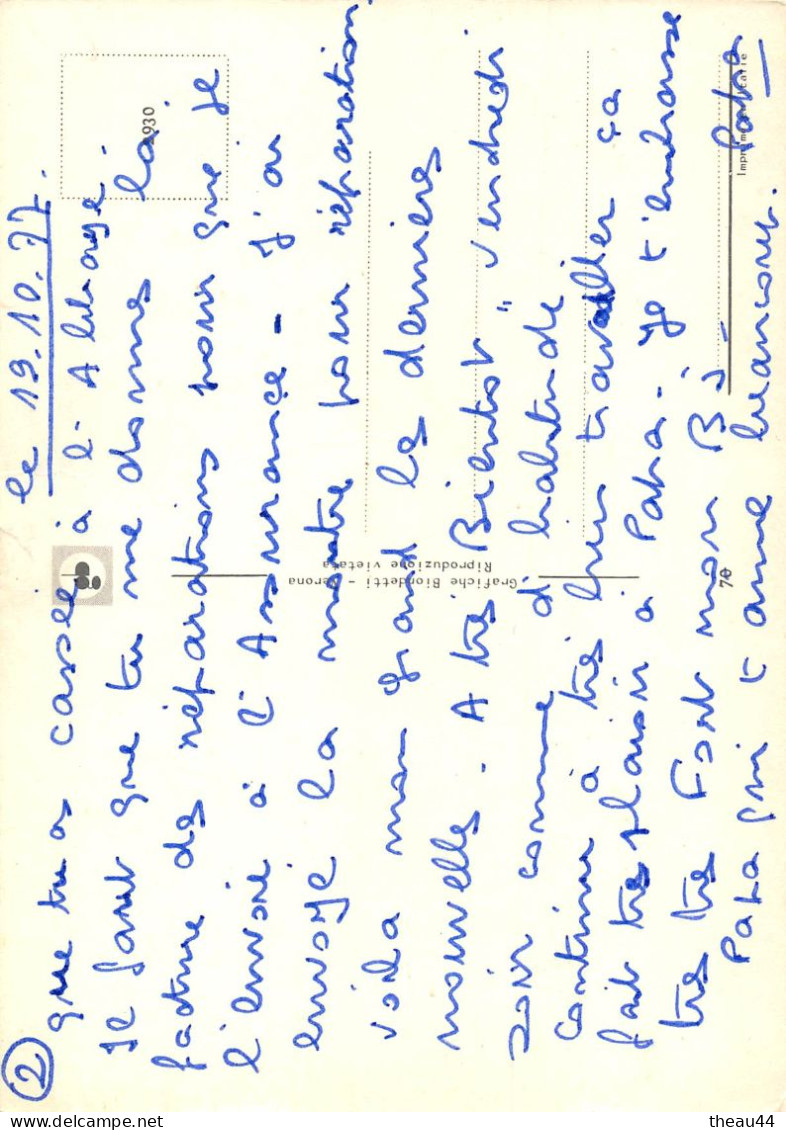 le 13.10.77.
② que tu as cassé à l'
Il faut que tu me donnes la
facture des réparations pour que je
l'envoie à l'Assurance - J'ai
envoyé la montre pour réparation.
voila mon grand les dernieres
nouvelles. A très Bientot "vendredi
soir comme d'habitude.
continue à très bien travailler ça
fait très plaisir à Papa. Je t'embrasse
très très Fort mon Bi -
Papa qui t'aime beaucoup. Papa
2930
Grafiche Biondetti - Verona
Riproduzione vietata
70
theau44